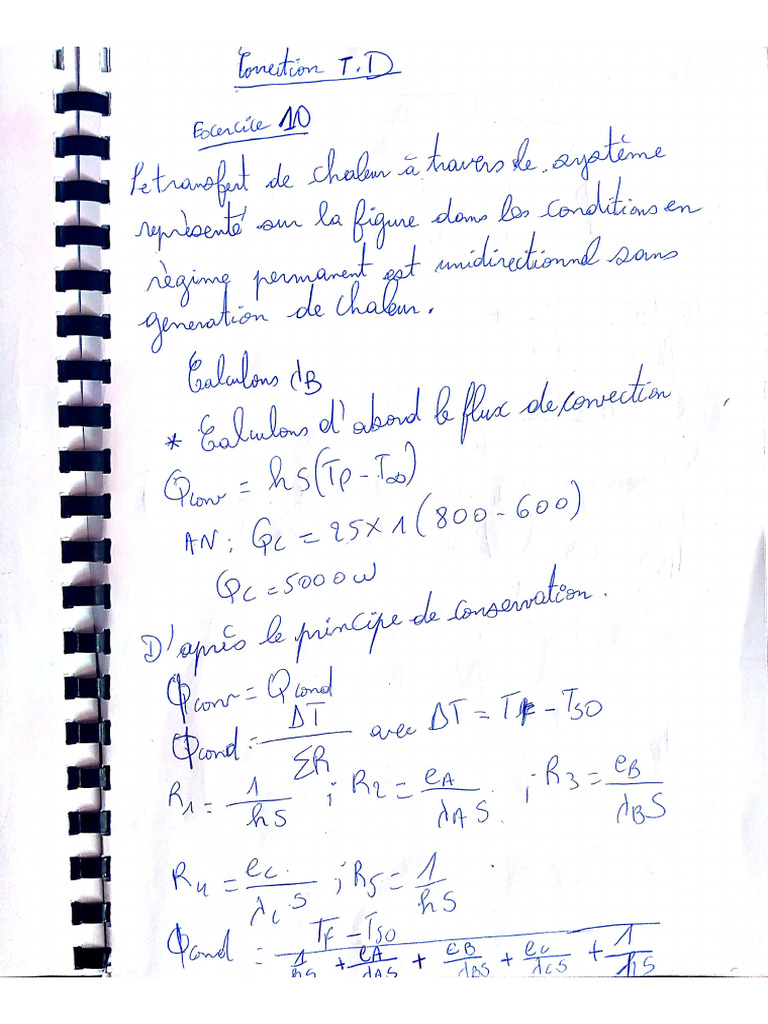 Correction T.D
Exercice 10
Le transfert de chaleur à travers le système
représenté sur la figure dans les conditions en
règime permanent est unidirectionnel sans
generation de chaleur.
Calculons λB
* Calculons d'abord le flux de convection
Qconv = hS(TP - T∞)
AN : Qc = 25x1(800-600)
Qc = 5000w
D'après le principe de conservation.
φconv = Qcond
φcond = ΔT / ΣR avec ΔT = TF - TSO
R1 = 1 / hS ; R2 = eA / λA S ; R3 = eB / λB S
R4 = eC / λC S ; R5 = 1 / hS
φcond = TF - TSO / 1/hS + eA/λAS + eB/λBS + eC/λCS + 1/hS